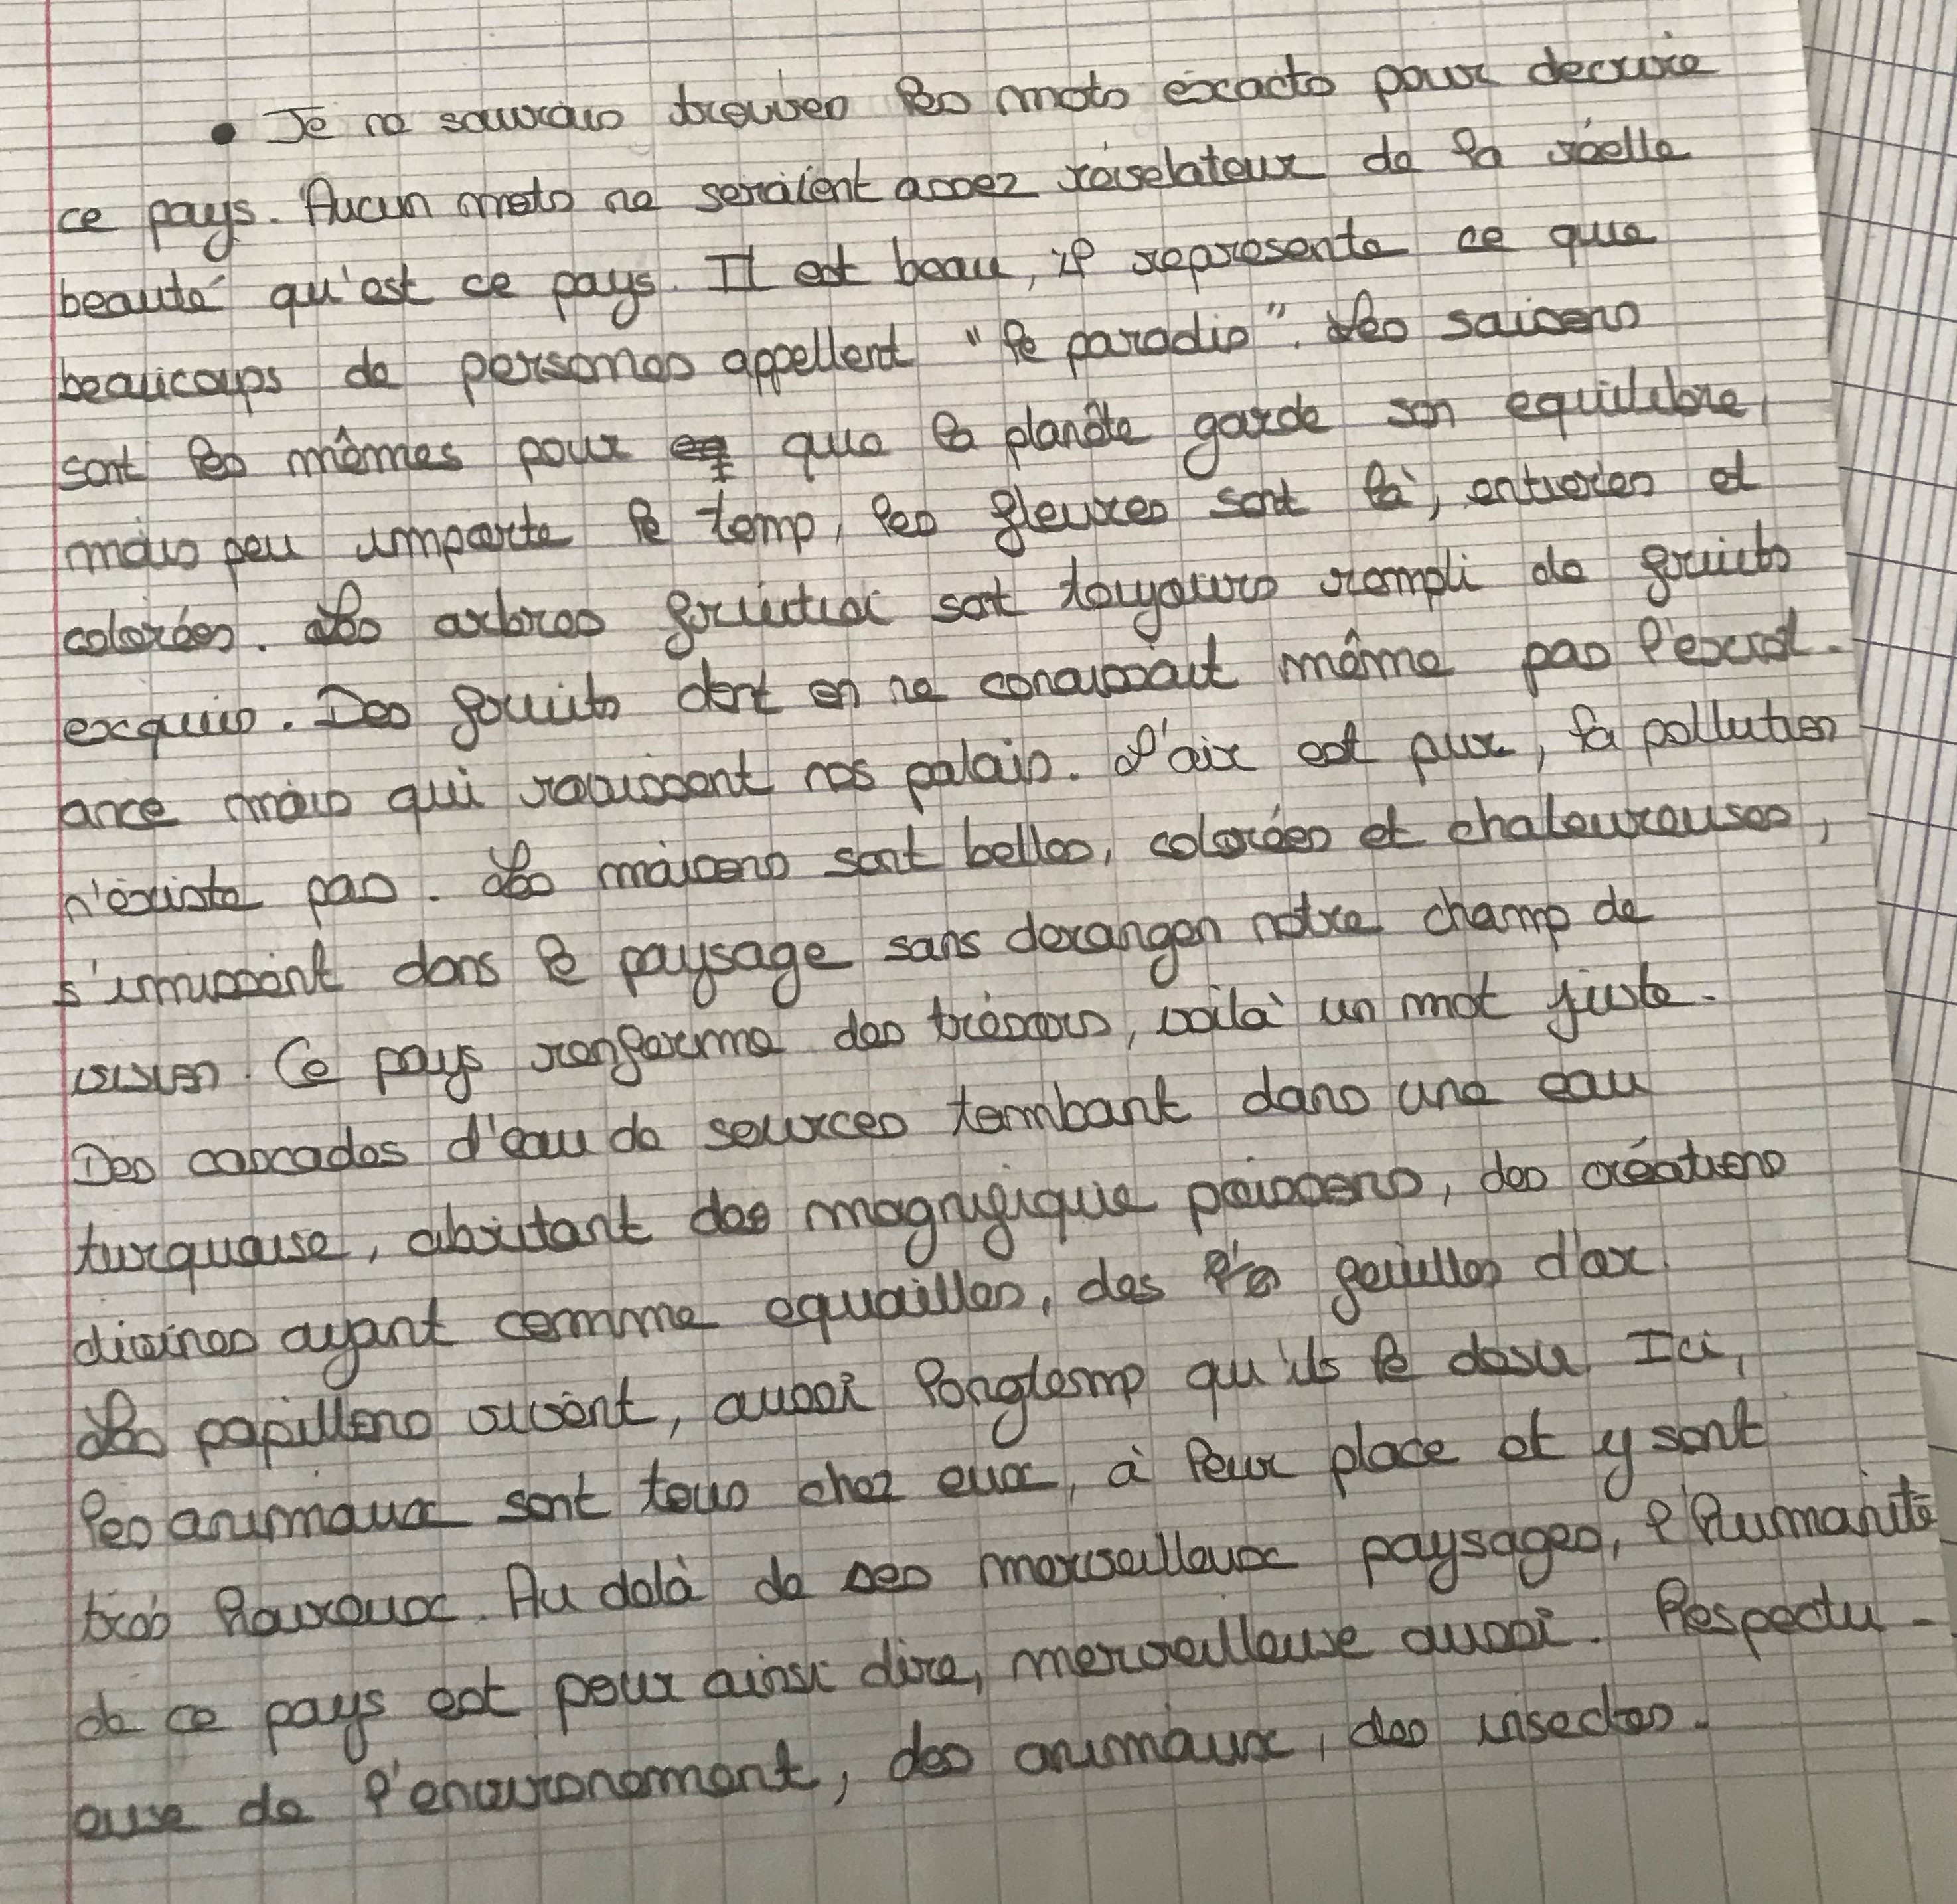 • Je ne saurais trouver les mots exacts pour decrire
ce pays. Aucun mots ne seraient assez révélateur de la réelle
beauté qu'est ce pays. Il est beau, il represente ce que
beaucoups de personnes appellent "le paradis". Les saisons
sont les mêmes pour que la planête garde son equilibre,
mais peu importe le temp, les fleures sont là, entieres et
colorées. Les arbres fruitié sont toujours rempli de fruits
exquis. Des fruits dont on ne conaissait même pas l'exist-
ance mais qui ravissent nos palais. L'air est pur, la pollution
n'éxiste pas. Les maisons sont belles, colorées et chaleureuses,
s'imissent dans le paysage sans deranger notre champ de
vision. Ce pays renferme des trésors, voilà un mot juste.
Des cascades d'eau de sources tombant dans une eau
turquoise, abritant des magnifique poissons, des créations
divines ayant comme equailles, des feuilles d'or.
Les papillons vivent, aussi longtemp qu'ils le desir. Ici,
les animaux sont tous chez eux, à leur place et y sont
très heureux. Au delà de ses merveilleux paysages, l'humanité
de ce pays est pour ainsi dire, merveilleuse aussi. Respectu-
euse de l'environement, des animaux, des insectes.